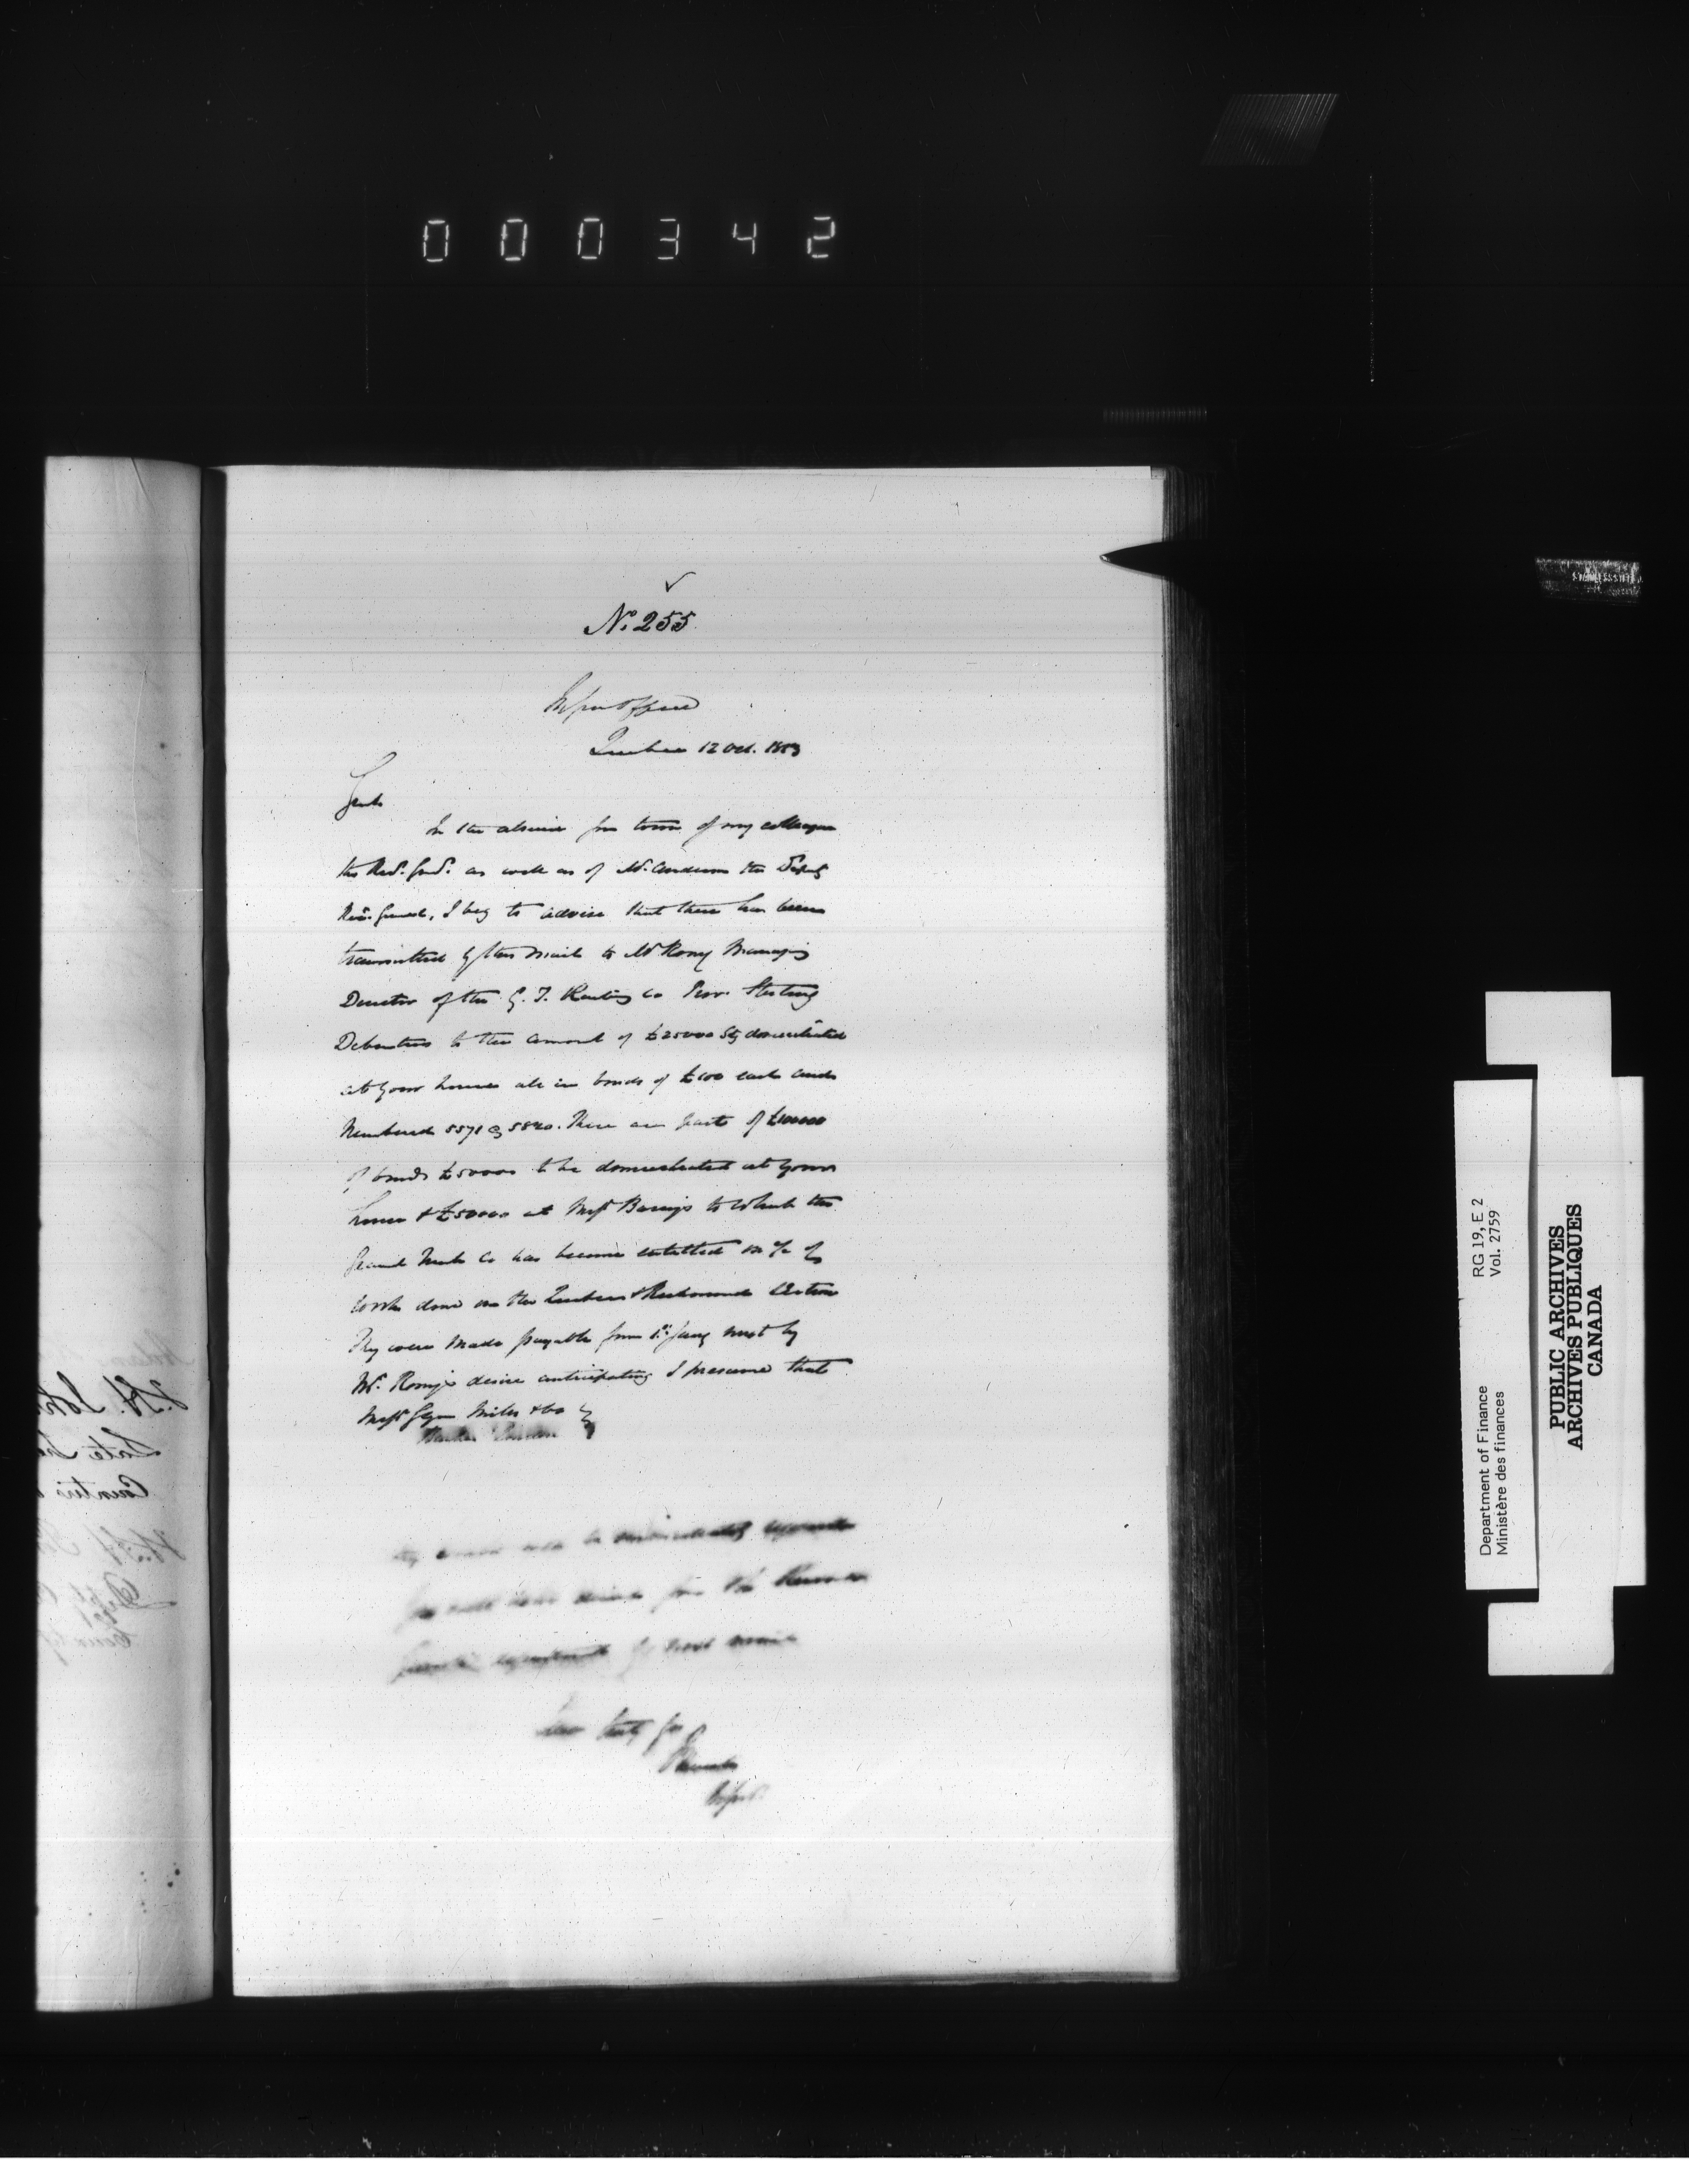 000342
✓
No. 255
Insp. Genl Office
Quebec 12 Oct. 1853
Gents
In the absence from town of my colleague
the Recr. Genl. as well as of Mr. Anderson the Deputy
Recr. General, I beg to advise that there has been
transmitted by this Mail to Mr Roney Managing
Director of the G. T. Railway Co Prov. Sterling
Debentures to the amount of £25000 Stg domiciliated
at your house all in bonds of £100 each and
Numbered 5571 @ 5820. These are part of £100000
of bonds £50000 to be domiciliated at your
house & £50000 at Messrs Barings to which the
Grand Trunk Co has become entitled on % of
work done on the Quebec & Richmond Section
They were made payable from 1st Jany next by
Mr. Roney's desire anticipating I presume that
Messrs Glyn Mills & Co
London
they would be immediately
you will have from the Receiver
General's department by next mail
I have truly
Insp. Genl.
PUBLIC ARCHIVES
ARCHIVES PUBLIQUES
CANADA
Department of Finance
Ministère des finances
RG 19, E 2
Vol. 2759